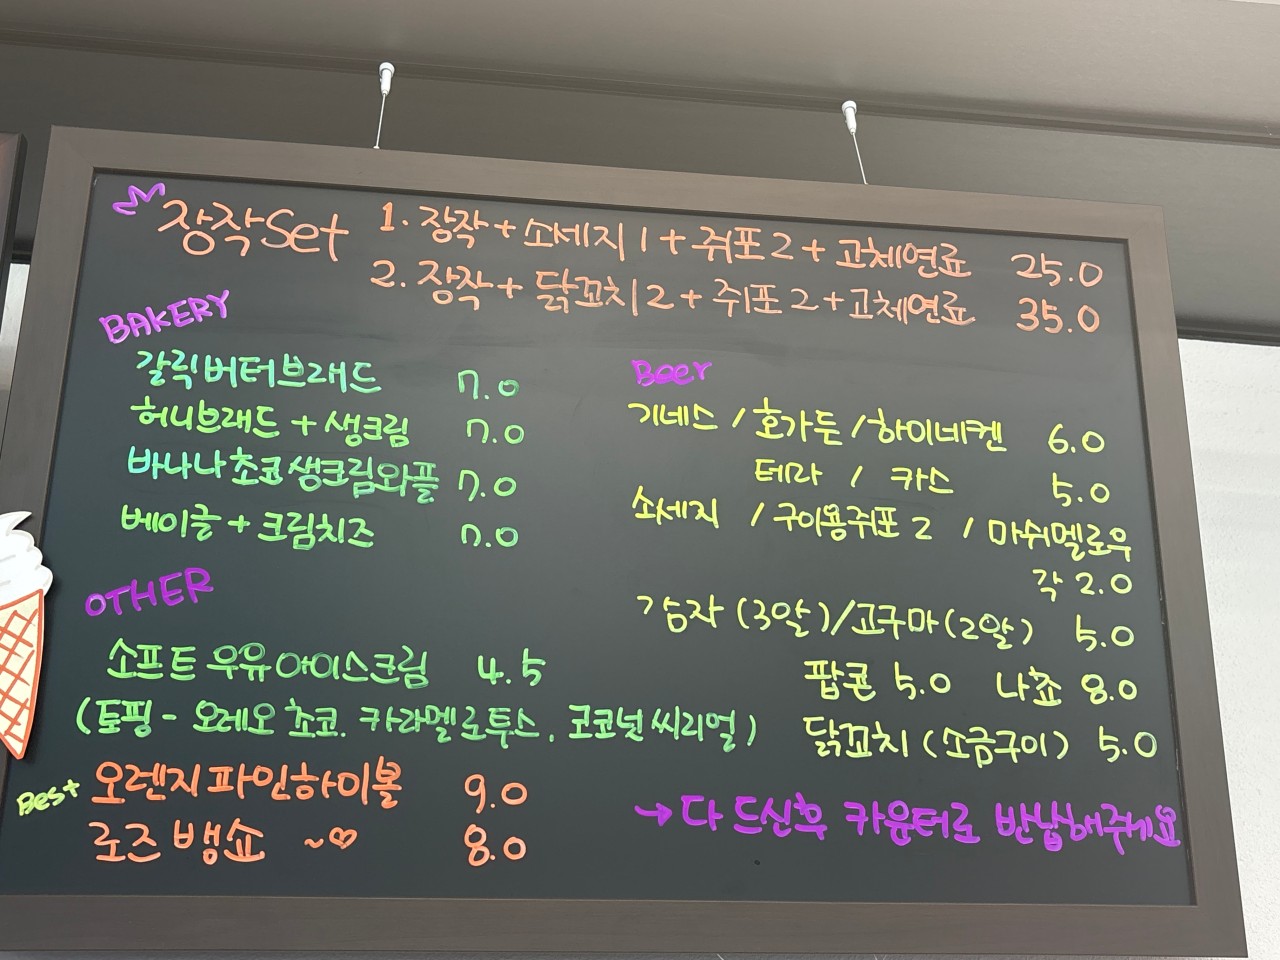 장작Set 1. 장작 + 소세지 1 + 쥐포 2 + 고체연료 25.0
2. 장작 + 닭꼬치 2 + 쥐포 2 + 고체연료 35.0
BAKERY
갈릭버터브래드 7.0
허니브래드 + 생크림 7.0
바나나초코생크림와플 7.0
베이글 + 크림치즈 7.0
OTHER
소프트 우유 아이스크림 4.5
(토핑 - 오레오 초코. 카라멜로투스. 코코넛 씨리얼)
Best 오렌지파인하이볼 9.0
로즈 뱅쇼 ~♡ 8.0
Beer
기네스 / 호가든 / 하이네켄 6.0
테라 / 카스 5.0
소세지 / 구이용쥐포 2 / 마쉬멜로우
각 2.0
감자 (3알) / 고구마 (2알) 5.0
팝콘 5.0 나쵸 8.0
닭꼬치 (소금구이) 5.0
→ 다 드신후 카운터로 반납해주세요